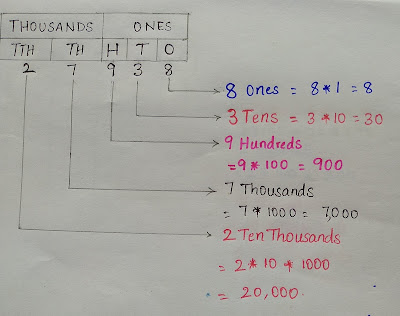 THOUSANDS ONES
TTH TH H T O
2 7 9 3 8
8 Ones = 8*1 = 8
3 Tens = 3*10 = 30
9 Hundreds
=9*100 = 900
7 Thousands
= 7*1000 = 7,000
2 Ten Thousands
= 2*10*1000
= 20,000.